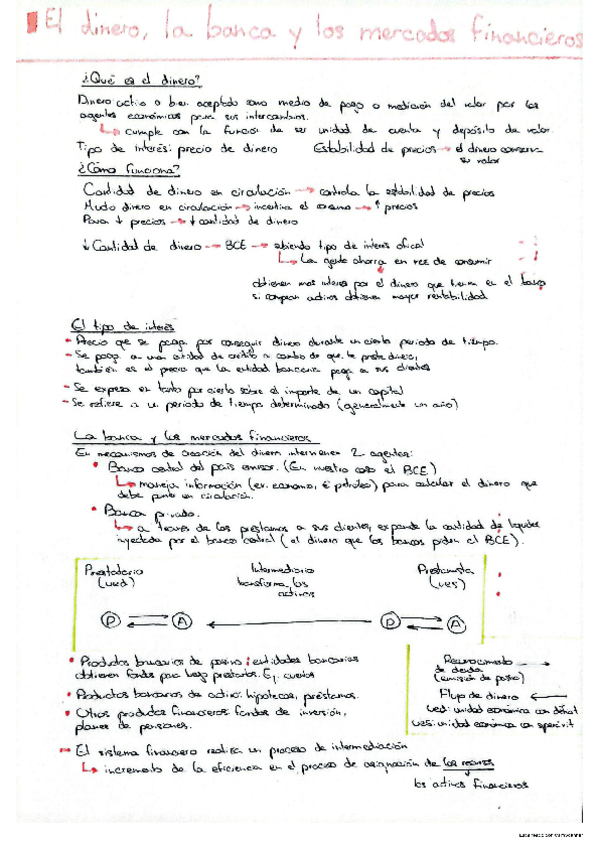 El dinero, la banca y los mercados financieros
¿Qué es el dinero?
Dinero: activo o bien aceptado como medio de pago o medición del valor por los
agentes económicos para sus intercambios.
↳ cumple con la función de ser unidad de cuenta y depósito de valor.
Tipo de interés: precio de dinero Estabilidad de precios → el dinero conserva
su valor
¿Cómo funciona?
Cantidad de dinero en circulación → controla la estabilidad de precios
Mucho dinero en circulación → incentiva el consumo → ↑ precios
Para ↓ precios → ↓ cantidad de dinero
↓ Cantidad de dinero → BCE → subiendo tipo de interés oficial
↳ La gente ahorra en vez de consumir
obtienen más interés por el dinero que tienen en el banco
si compran activos obtienen mayor rentabilidad
El tipo de interés
- Precio que se paga por conseguir dinero durante un cierto periodo de tiempo.
- Se paga a una entidad de crédito a cambio de que te preste dinero,
también es el precio que la entidad bancaria paga a sus clientes
- Se expresa en tanto por ciento sobre el importe de un capital
- Se refiere a un periodo de tiempo determinado (generalmente un año)
La banca y los mercados financieros
En mecanismos de creación del dinero intervienen 2 agentes:
• Banco central del país emisor. (En nuestro caso el BCE)
↳ maneja información (ev. economía, € petróleo) para calcular el dinero que
debe poner en circulación.
• Banca privada.
↳ a través de los préstamos a sus clientes, expande la cantidad de liquidez
inyectada por el banco central (el dinero que los bancos piden al BCE).
Prestatario Intermediario Prestamista
(ued) transforma los (ues)
activos
P A P A
• Productos bancarios de pasivo: entidades bancarias
obtienen fondos para luego prestarlos. Ej. cuentas
• Productos bancarios de activo: hipotecas, préstamos.
• Otros productos financieros: fondos de inversión,
planes de pensiones.
Reconocimiento →
de deuda
(emisión de pasivo)
Flujo de dinero ←
ued: unidad económica con déficit
ues: unidad económica con superávit
→ El sistema financiero realiza un proceso de intermediación
↳ incremento de la eficiencia en el proceso de asignación de los recursos
los activos financieros